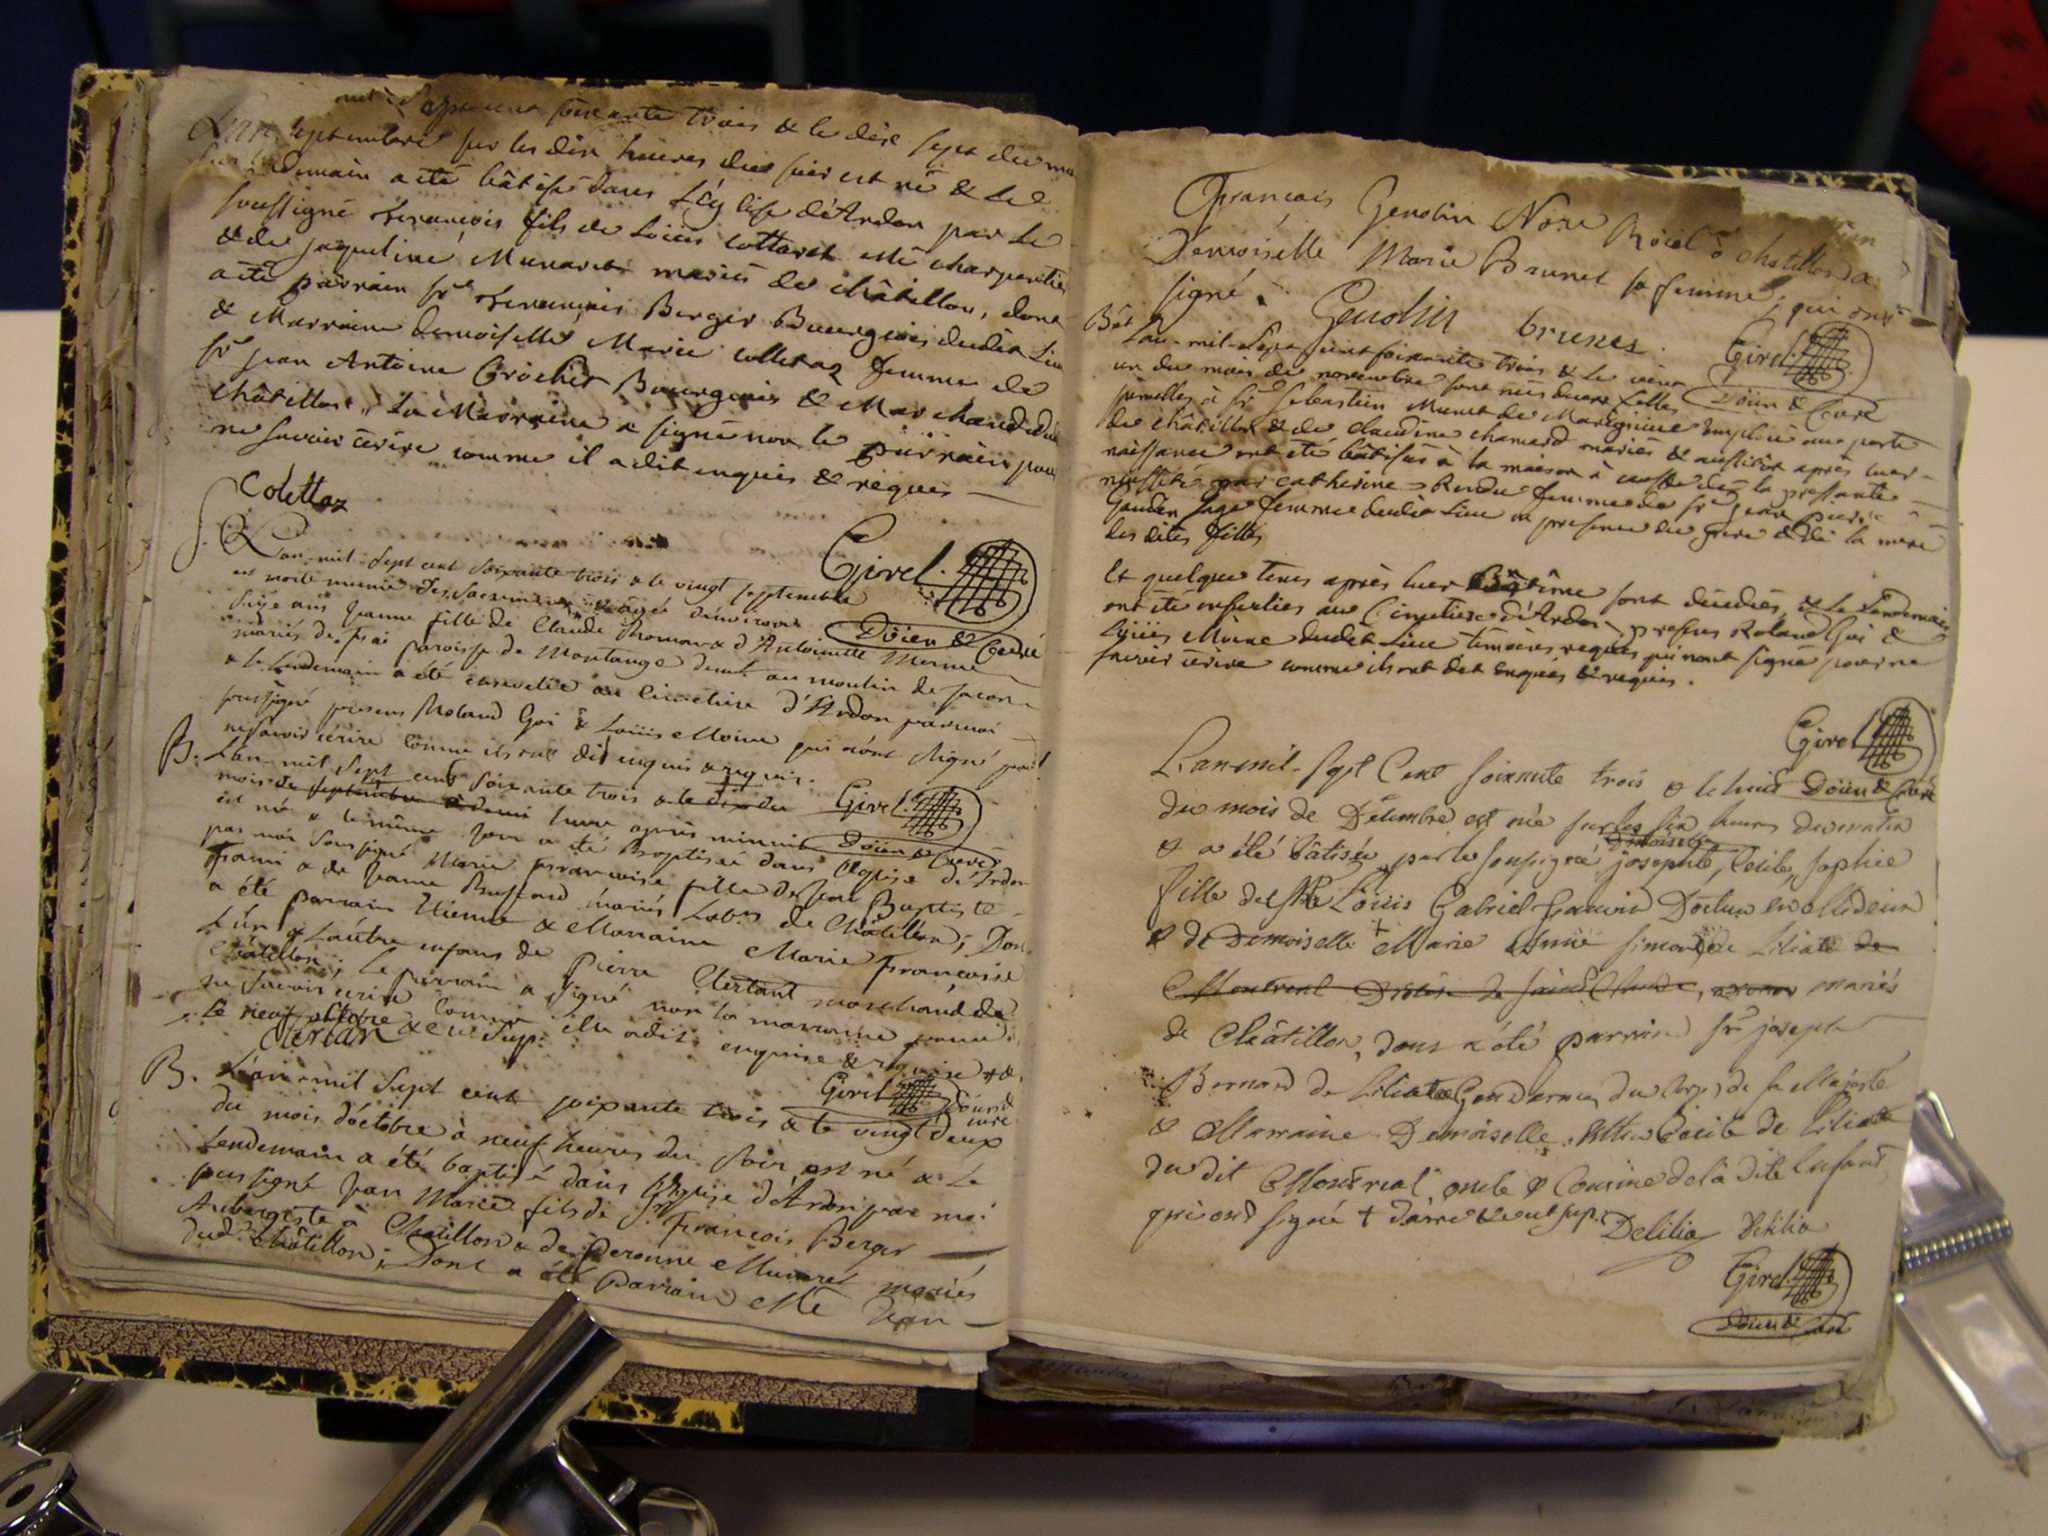 mil Sept cent soixante trois & le dix sept du
septembre sur les dix heures du soir est né & le
lendemain a été bâtisé dans l'église d'Ardon par le
soussigné François fils de Loüis Cottaret Me charpentier
& de jaqueline Munaret mariés de châtillon, dont
a été parrain sr François Berger Bourgeois dudit Lieu
& Marraine demoiselle Marie Colletaz femme de
sr jean Antoine Crochet Bourgeois & Marchand dudit
châtillon. La Marraine a signé non le parrain pour
ne savoir écrire comme il a dit enquis & requis
Colettaz
Girel
Doïen & Curé
L'an mil Sept cent soixante trois & le vingt septembre
est morte munie des Sacremens agée d'environ
seize ans jeanne fille de Claude Romar & d'Antoinette Mermet
mariés de paroisse de Montange demt au moulin de
& le lendemain a été ensevelie au cimetière d'Ardon par moi
soussigné présens Roland Goi & Loüis Moine qui n'ont signé pour
ne savoir écrire comme ils ont dit enquis & requis.
Girel
Doïen & Curé
B. L'an mil Sept cent soixante trois & le dix du
mois de septembre & demi heure après minuit
est né & le même jour a été Baptisée dans l'église d'Ardon
par moi Soussigné Marie françoise fille de jean Baptiste
& de jeanne Buffard mariés Labrs de Châtillon; Dont
a été parrain Etienne & Marraine Marie Françoise
L'un & L'autre enfans de Pierre Clertant marchand de
châtillon; Le parrain a signé non la marraine pour
ne Savoir écrire comme elle a dit enquise & requise
Le neuf octobre & c ut sup.
Clertan
Girel
Doïen & curé
B. L'an mil Sept cent soixante trois & le vingt deux
du mois d'octobre à neuf heures du soir est né & le
Lendemain a été baptisé dans l'église d'Ardon par moi
soussigné jean Marie fils de sr François Berger
Aubergiste à Chatillon & de Peronne Munaret mariés
dudt châtillon; Dont a été Parrain Me
François Genolin Nore Roïal à chatillon &
Demoiselle Marie Brunet sa femme, qui ont
signé.
Genolin brunet
Girel
Doïen & Curé
Bât L'an mil Sept cent soixante trois & le vint
un du mois de novembre sont nées deux filles
jumelles à sr Sebastien Munet de Marignine Emploïé au poste
de châtillon & de claudine chamard mariés & aussitôt après leur
naissance ont été bâtisées à la maison à cause de la pressante
nécessité par catherine Rendu femme de sr jean pierre
Goudin sage femme dudit Lieu en présence du père & de la mère
des dites filles
Et quelque tems après leur Bâtême sont décédées, & le Lendemain
ont été ensevelies au Cimetiere d'Ardon, presens Roland Goi &
Loüis Moine dudit Lieu témoins requis qui n'ont signé pour ne
savoir écrire comme ils ont dit enquis & requis.
Girel
Doïen & Curé
L'an mil Sept Cent soixante trois & le huit
du mois de Décembre est née sur les six heures du matin
& a été bâtisée par le soussigné demoiselle josephte, Cecile, Sophie
fille de Mr Loüis Gabriel Docteur en Médecine
& de Demoiselle + Marie Anne simone de Liliat de
Montreal Diocèse de Saint Claude, mariés
de Châtillon, dont a été parrain sr joseph
Bernard de Liliat Gendarme du Corps de sa Majesté
& Marraine Demoiselle Cecile de Liliat
du dit Montreal, oncle & Cousine de la dite Enfant
qui ont signé + & ut sup. Delilia Delilia
Girel
Doïen & Curé